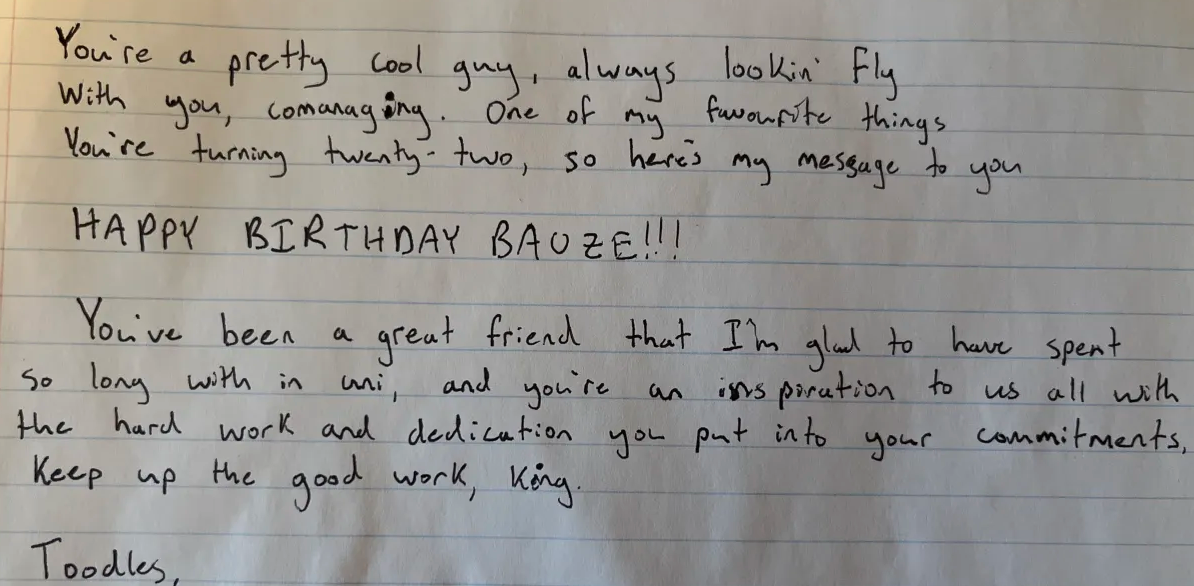 You're a pretty cool guy, always lookin' fly
With you, comanaging. One of my favourite things
You're turning twenty-two, so here's my message to you
HAPPY BIRTHDAY BAOZE!!!
You've been a great friend that I'm glad to have spent
so long with in uni, and you're an inspiration to us all with
the hard work and dedication you put into your commitments,
Keep up the good work, King.
Toodles,